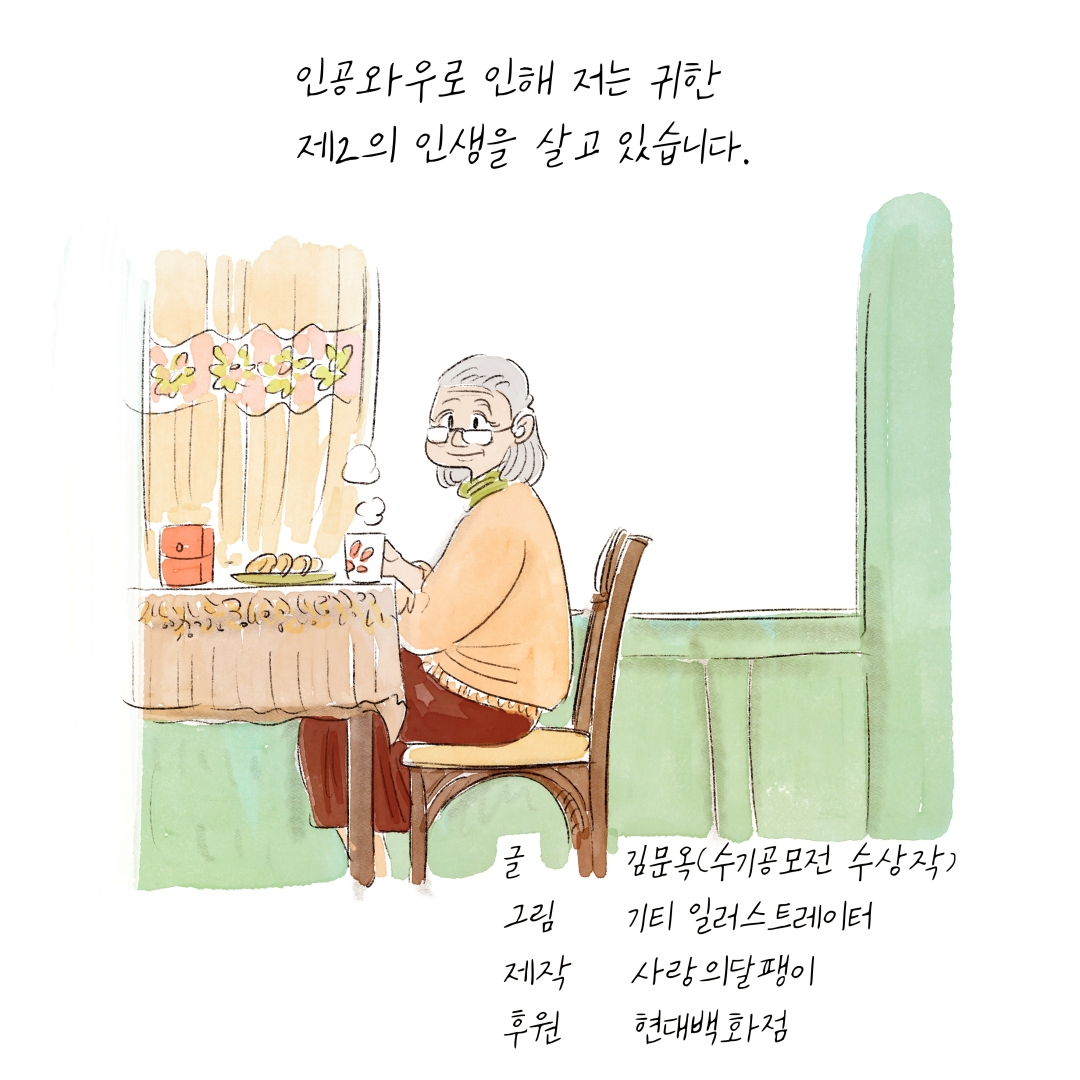 인공와우로 인해 저는 귀한
제2의 인생을 살고 있습니다.
글 김문옥(수기공모전 수상작)
그림 기티 일러스트레이터
제작 사랑의달팽이
후원 현대백화점